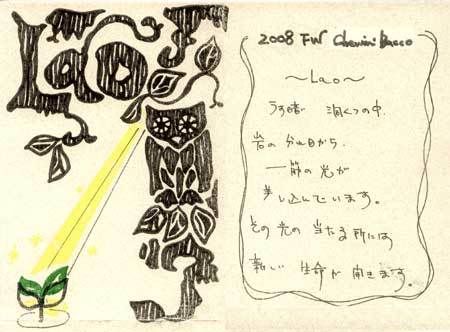 Lao
2008 FW
～Lao～
うす暗い 洞くつの中、
岩の から
一筋の 光が
差し込んでいます。
その 光の 当たる 所には
新しい 生命が 開きます。